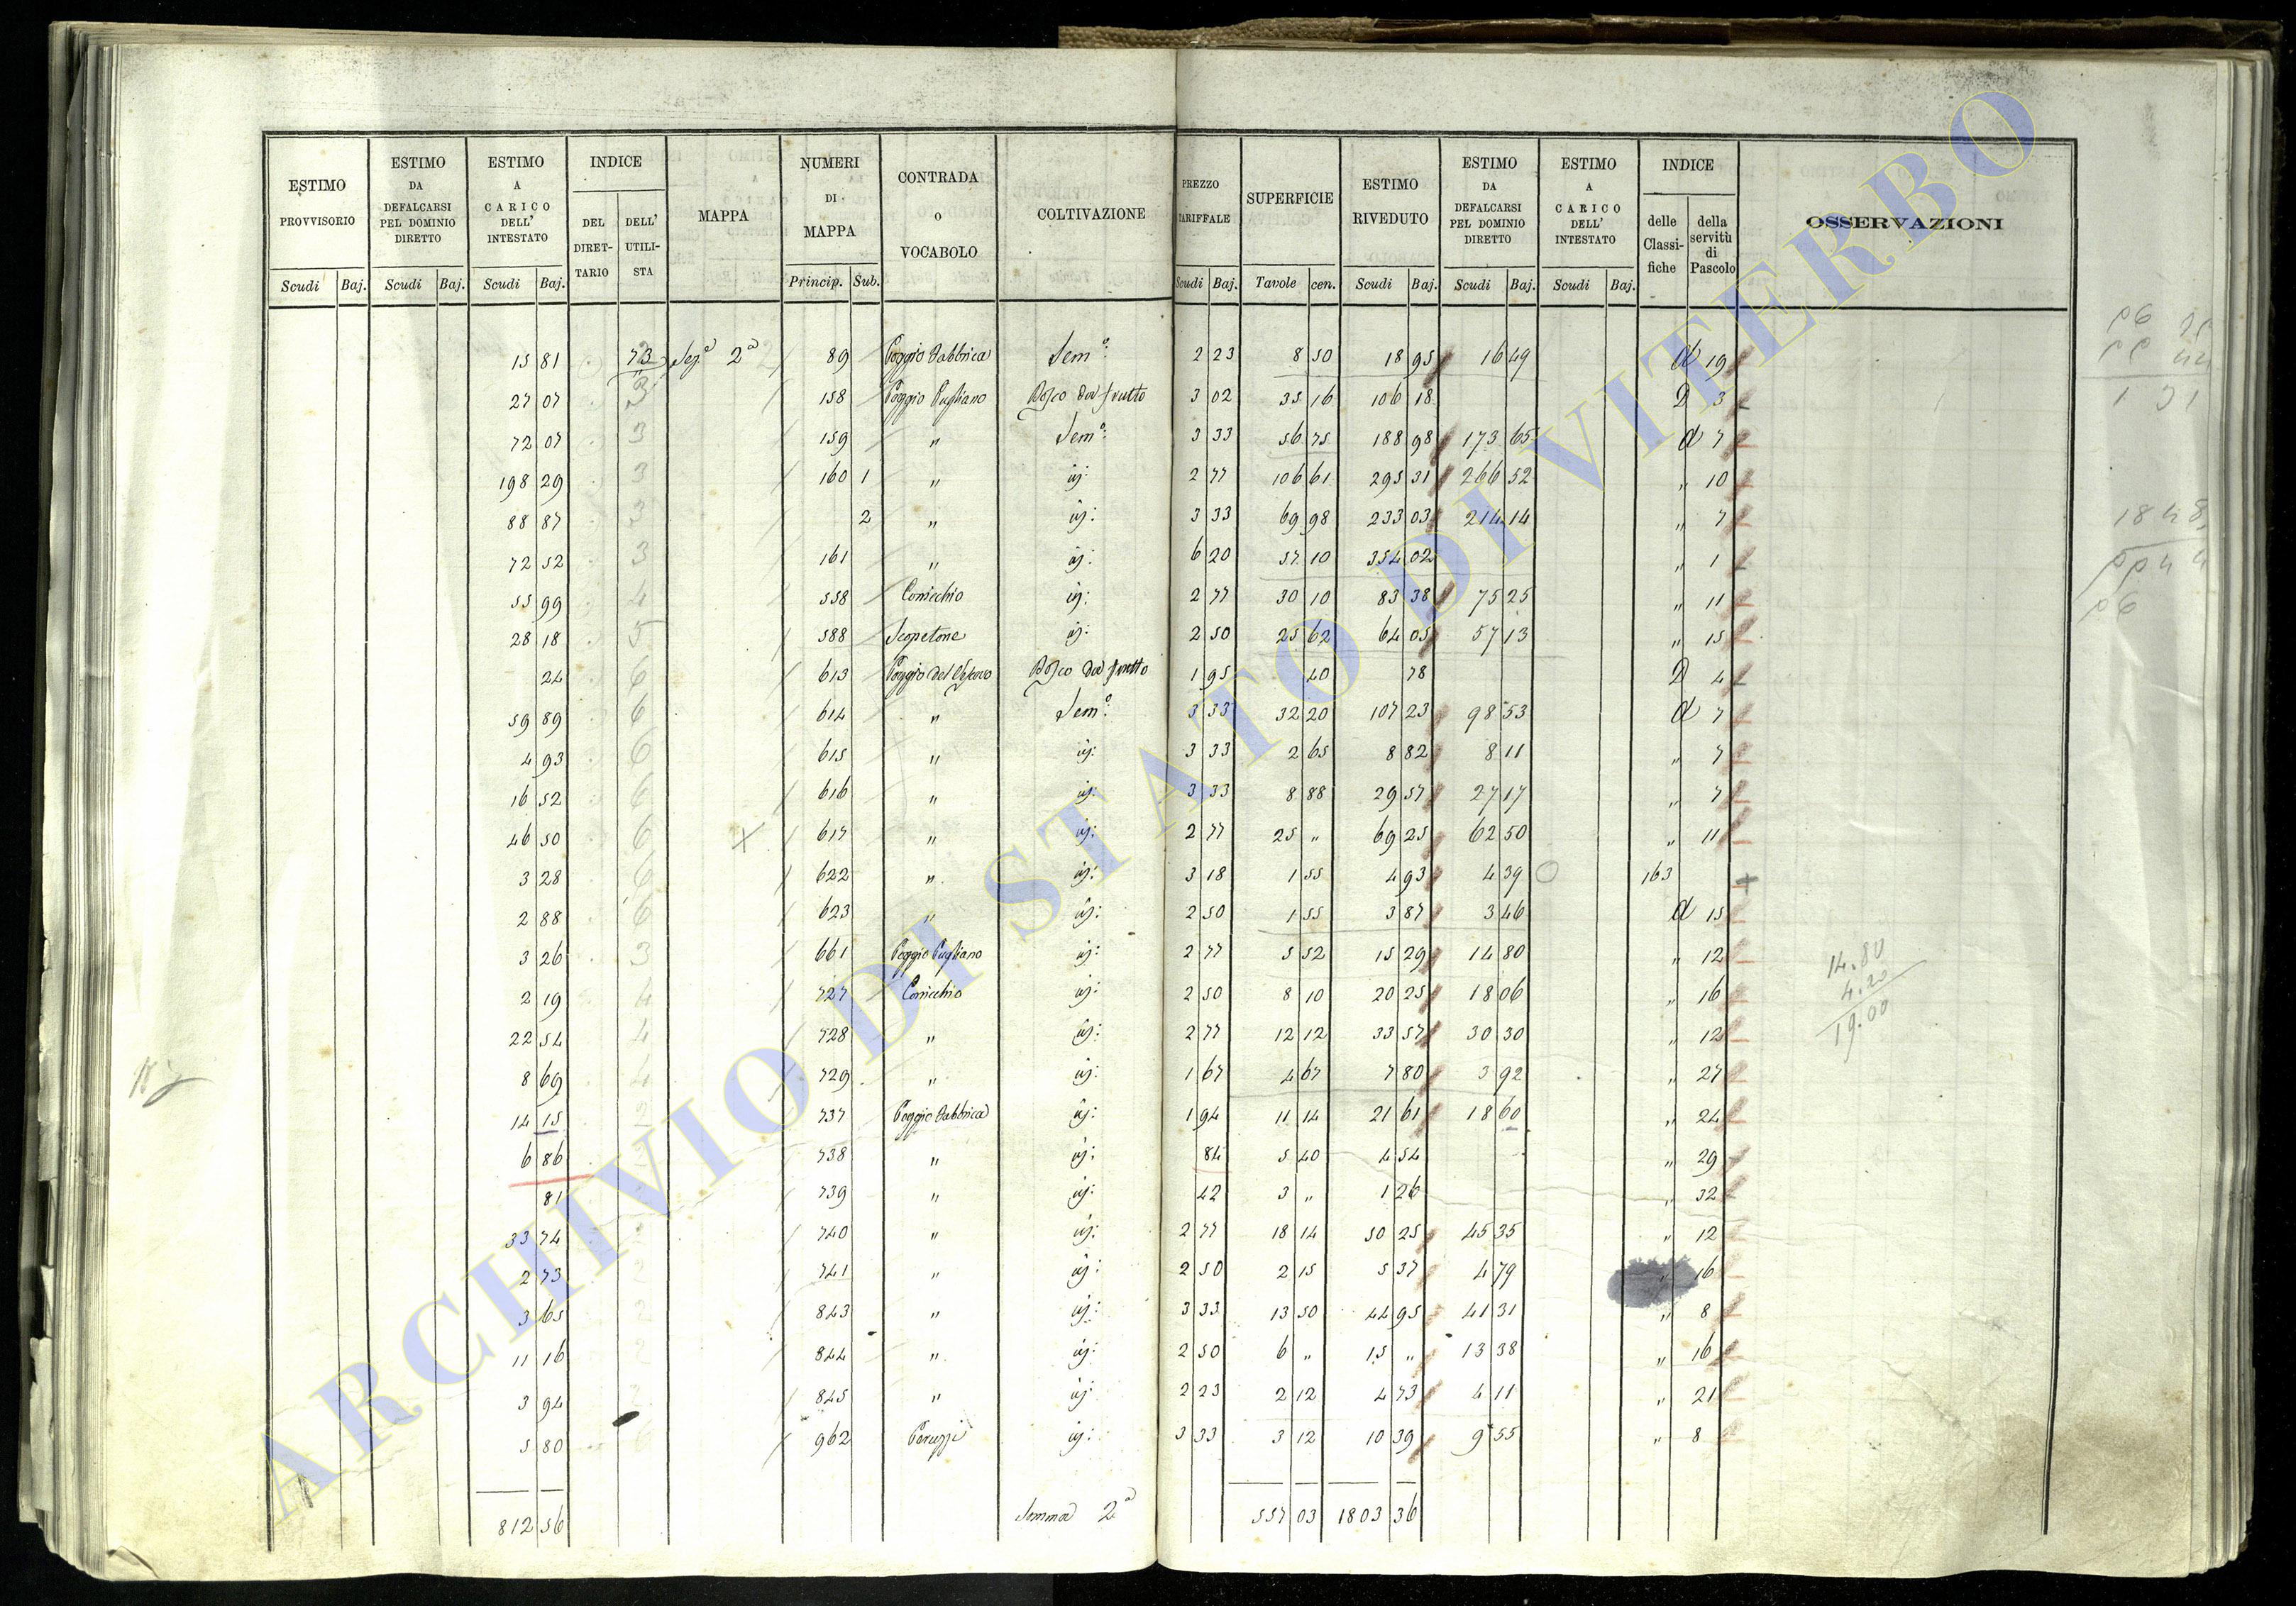 ESTIMO PROVVISORIO Scudi Baj.
ESTIMO DA DEFALCARSI PEL DOMINIO DIRETTO Scudi Baj.
ESTIMO A CARICO DELL' INTESTATO Scudi Baj.
INDICE DEL DIRET- TARIO DELL' UTILI- STA
MAPPA
NUMERI DI MAPPA Princip. Sub.
CONTRADA O VOCABOLO
COLTIVAZIONE
PREZZO TARIFFALE Scudi Baj.
SUPERFICIE Tavole cen.
ESTIMO RIVEDUTO Scudi Baj.
ESTIMO DA DEFALCARSI PEL DOMINIO DIRETTO Scudi Baj.
ESTIMO A CARICO DELL' INTESTATO Scudi Baj.
INDICE delle Classi- fiche della servitù di Pascolo
OSSERVAZIONI
15 81 73 Sez.ª 2ª 89 Poggio Fabbrica Sem.º 2 23 8 50 18 95 16 49 d 19
27 07 3 158 Poggio Pugliano Bosco da frutto 3 02 35 16 106 18 D 3
72 07 3 159 " Sem.º 3 33 56 75 188 98 173 65 d 7
198 29 3 160 1 " id: 2 77 106 61 295 31 266 52 " 10
88 87 3 2 " id: 3 33 69 98 233 03 214 14 " 7
72 52 3 161 " id: 6 20 57 10 354 02 " 1
55 99 4 558 Conicchio id: 2 77 30 10 83 38 75 25 " 11
28 18 5 588 Scopetone id: 2 50 25 62 64 05 57 13 " 15
24 6 613 Poggio del Vescovo Bosco da frutto 1 95 40 78 D 4
59 89 6 614 " Sem.º 3 33 32 20 107 23 98 53 d 7
4 93 6 615 " id: 3 33 2 65 8 82 8 11 " 7
16 52 6 616 " id: 3 33 8 88 29 57 27 17 " 7
46 50 6 617 " id: 2 77 25 " 69 25 62 50 " 11
3 28 6 622 " id: 3 18 1 55 4 93 4 39 163
2 88 6 623 " id: 2 50 1 55 3 87 3 46 d 15
3 26 3 661 Poggio Pugliano id: 2 77 5 52 15 29 14 80 " 12
2 19 4 727 Conicchio id: 2 50 8 10 20 25 18 06 " 16
22 54 4 728 " id: 2 77 12 12 33 57 30 30 " 12
8 69 4 729 " id: 1 67 4 67 7 80 3 92 " 27
14 15 2 737 Poggio Fabbrica id: 1 94 11 14 21 61 18 60 " 24
6 86 738 " id: 84 5 40 4 54 " 29
81 739 " id: 42 3 " 1 26 " 32
33 74 740 " id: 2 77 18 14 50 25 45 35 " 12
2 73 741 " id: 2 50 2 15 5 37 4 79 " 16
3 65 2 843 " id: 3 33 13 50 44 95 41 31 " 8
11 16 2 844 " id: 2 50 6 " 15 " 13 38 " 16
3 94 845 " id: 2 23 2 12 4 73 4 11 " 21
5 80 6 962 Peruzzi id: 3 33 3 12 10 39 9 55 " 8
812 56 Somma 2ª 557 03 1803 36
14.80
4.20
19.00
ARCHIVIO DI STATO DI VITERBO